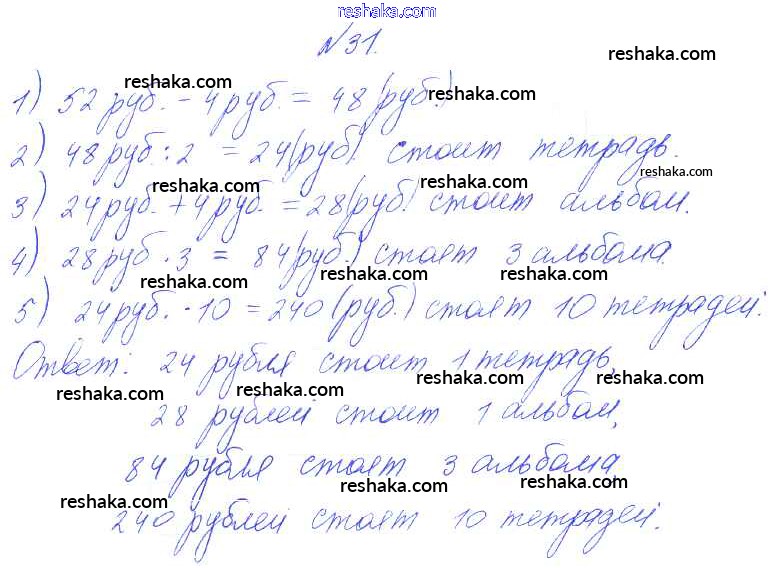 reshaka.com
№31.
reshaka.com
reshaka.com
1) 52 руб. - 4 руб. = 48 (руб.)
reshaka.com
reshaka.com
2) 48 руб. : 2 = 24 (руб.) стоит тетрадь.
reshaka.com reshaka.com reshaka.com
3) 24 руб. + 4 руб. = 28 (руб.) стоит альбом.
reshaka.com
4) 28 руб. · 3 = 84 (руб.) стоят 3 альбома.
reshaka.com reshaka.com
5) 24 руб. · 10 = 240 (руб.) стоят 10 тетрадей.
reshaka.com
Ответ: 24 рубля стоит 1 тетрадь,
reshaka.com reshaka.com reshaka.com reshaka.com
28 рублей стоит 1 альбом,
84 рубля стоят 3 альбома,
reshaka.com reshaka.com reshaka.com
240 рублей стоят 10 тетрадей.